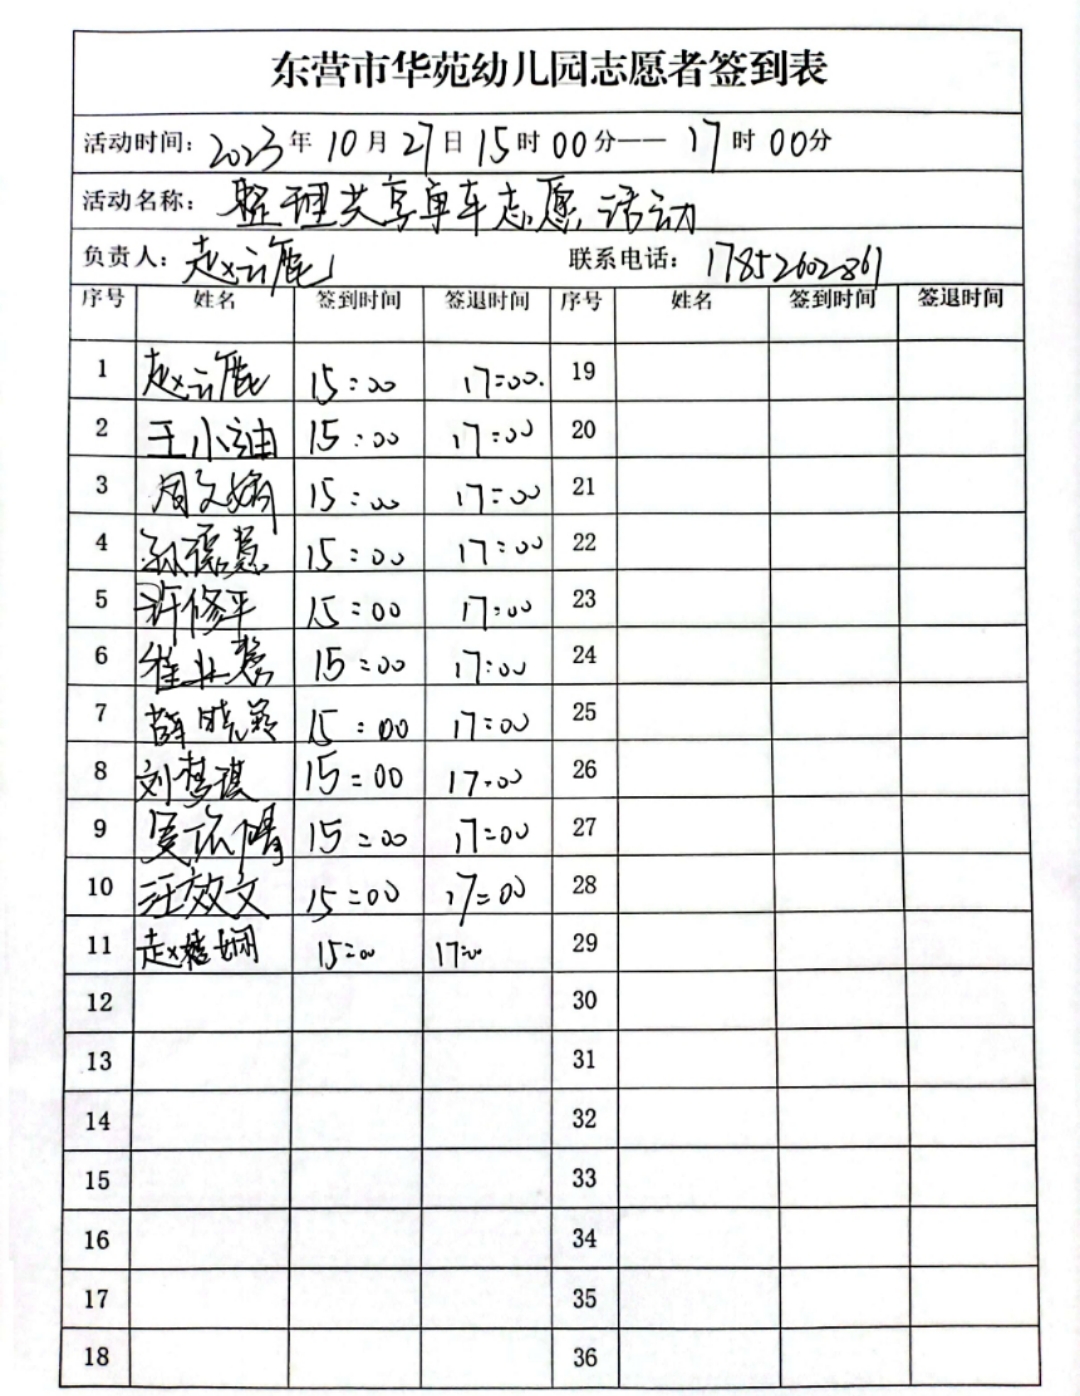 东营市华苑幼儿园志愿者签到表
活动时间：2023年10月27日15时00分——17时00分
活动名称：整理共享单车志愿活动
负责人：赵云鹿 联系电话：17852602861
序号 姓名 签到时间 签退时间 序号 姓名 签到时间 签退时间
1 赵云鹿 15:00 17:00. 19
2 王小迪 15:00 17:00 20
3 周文娟 15:00 17:00 21
4 孙德慧 15:00 17:00 22
5 许修平 15:00 17:00 23
6 崔业慧 15:00 17:00 24
7 薛晓 15:00 17:00 25
8 刘梦琪 15:00 17:00 26
9 15:00 17:00 27
10 汪效文 15:00 17:00 28
11 赵娴 15:00 17:00 29
12 30
13 31
14 32
15 33
16 34
17 35
18 36